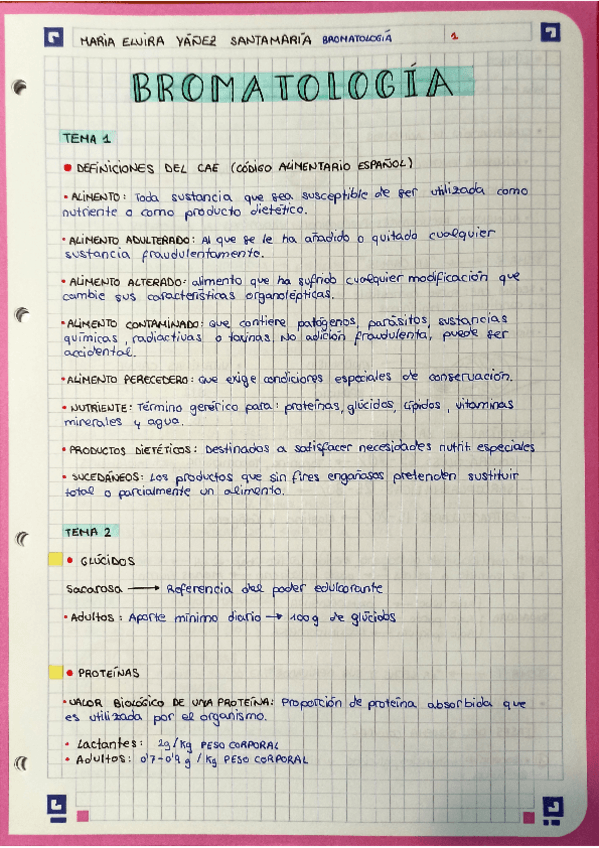 MARIA ELVIRA YÁÑEZ SANTAMARÍA BROMATOLOGIÁ 1
BROMATOLOGÍA
TEMA 1
• DEFINICIONES DEL CAE (CÓDIGO ALIMENTARIO ESPAÑOL)
• ALIMENTO: Toda sustancia que sea susceptible de ser utilizada como
nutriente o como producto dietético.
• ALIMENTO ADULTERADO: Al que se le ha añadido o quitado cualquier
sustancia fraudulentamente.
• ALIMENTO ALTERADO: alimento que ha sufrido cualquier modificación que
cambie sus características organolépticas.
• ALIMENTO CONTAMINADO: que contiene patógenos, parásitos, sustancias
químicas, radiactivas o toxinas. No adición fraudulenta, puede ser
accidental.
• ALIMENTO PERECEDERO: que exige condiciones especiales de conservación.
• NUTRIENTE: Término genérico para: proteínas, glúcidos, lípidos, vitaminas
minerales y agua.
• PRODUCTOS DIETÉTICOS: Destinados a satisfacer necesidades nutrit. especiales
• SUCEDÁNEOS: Los productos que sin fines engañosos pretenden sustituir
total o parcialmente un alimento.
TEMA 2
• GLÚCIDOS
Sacarosa → Referencia del poder edulcorante
• Adultos: Aporte mínimo diario → 100g de glúcidos
• PROTEÍNAS
• VALOR BIOLÓGICO DE UNA PROTEÍNA: Proporción de proteína absorbida que
es utilizada por el organismo.
• Lactantes: 2g/kg PESO CORPORAL
• Adultos: 0'7-0'9 g/kg PESO CORPORAL